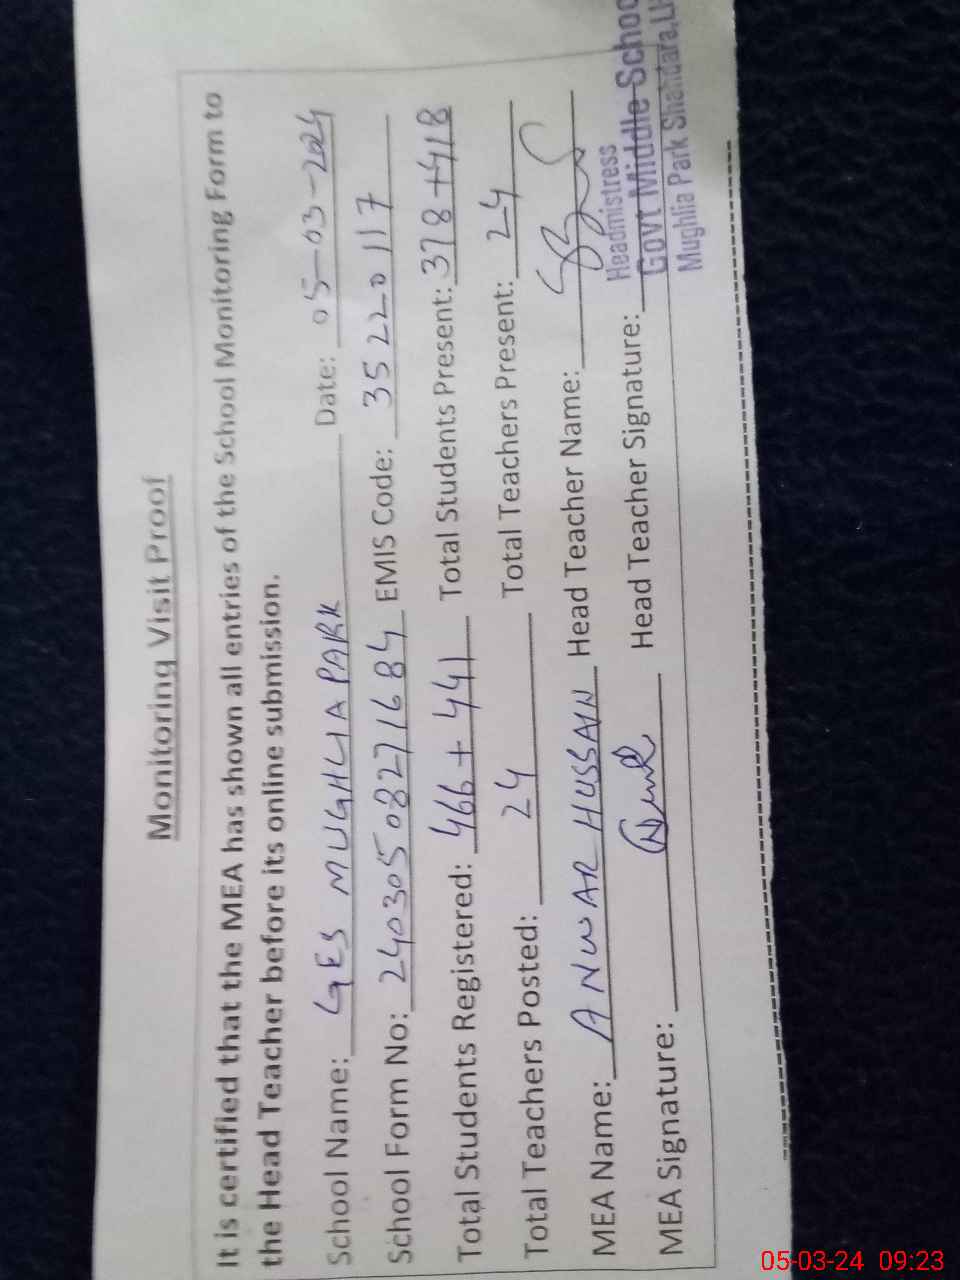 Monitoring Visit Proof
It is certified that the MEA has shown all entries of the School Monitoring Form to
the Head Teacher before its online submission.
School Name: GES MUGHLIA PARK Date: 05-03-2024
School Form No: 24030508271684 EMIS Code: 35220117
Total Students Registered: 466+441 Total Students Present: 378+418
Total Teachers Posted: 24 Total Teachers Present: 24
MEA Name: ANWAR HUSSAIN Head Teacher Name:
MEA Signature: Head Teacher Signature:
Headmistress
Govt Middle School
Mughlia Park Shahdara,
05-03-24 09:23